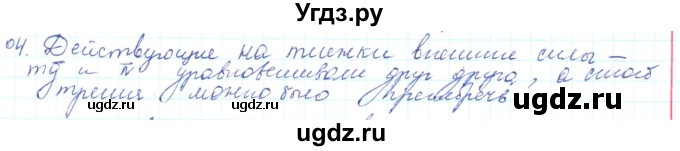 Угдз.ру
04. Действующие на тележки внешние силы –
mg и N уравновешивали друг друга, а силой
трения можно было пренебречь
©gdz.ru ©gdz.ru ©gdz.ru
©gdz.ru